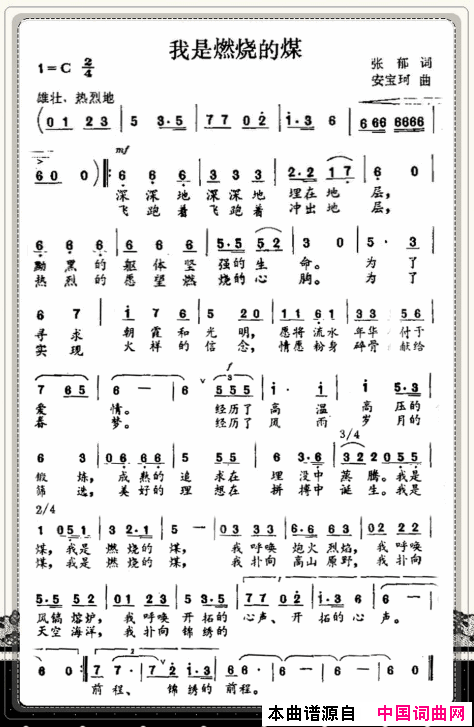 我是燃烧的煤
1=C 2/4
张郁 词
安宝珂 曲
雄壮、热烈地
(0 1 2 3 | 5 3·5 | 7 7 0 2 | i·3 6 | 6 66 6666 |
mf
6 0 0) ‖: 6 6 6 | 3 3 3 | 2·2 1 7 | 6 0 |
深深地 深深地 埋在地 层,
飞跑着 飞跑着 冲出地 层,
6 6 6 | 6 6 6 | 5·5 5 2 | 3 0 | 5· 3 |
黝黑的 躯体坚 强的生 命。 为了
热烈的 愿望燃 烧的心 胸。 为了
寻求 朝霞和光 明, 愿将 流水 年华 付于
实现 火样的信 念, 情愿 粉身 碎骨 献给
f
7 6 5 | 6 — | 6 — | 5 5 5 | i· i | i 5·3 |
爱 情。 经历了 高温 高压的
春 梦。 经历了 风雨 岁月的
3/4
煅炼, 成熟的 追求在 埋没中 蒸腾。我是
筛选, 美好的 理想在 拼搏中 诞生。我是
2/4
1 0 5 1 | 3 2·1 | 5 — | 0 3 3 | 6·6 6 3 | 0 2 2 2 |
煤,我是 燃烧的 煤, 我呼唤 炮火 烈焰, 我呼唤
煤,我是 燃烧的 煤, 我扑向 高山 原野, 我扑向
风镐 熔炉, 我呼唤 开拓的 心声、开 拓的心 声。
天空 海洋, 我扑向 锦绣的
前程、 锦绣的 前程。
本曲谱源自 中国词曲网